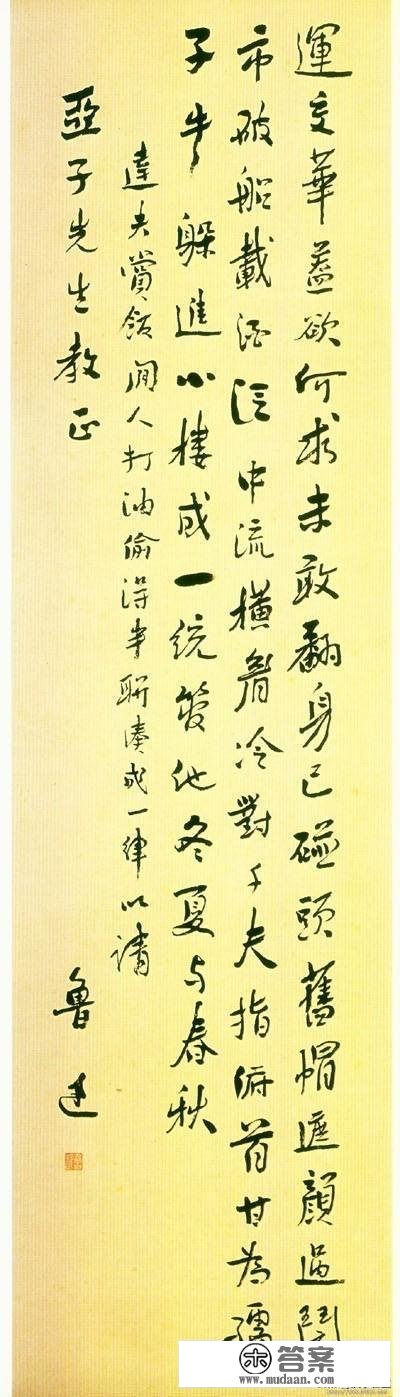 運交華蓋欲何求未敢翻身已碰頭舊帽遮顏過鬧
市破船載酒泛中流橫眉冷對千夫指俯首甘為孺
子牛躲進小樓成一統管他冬夏与春秋
達夫賞飯閒人打油偷得半聯湊成一律以請
亞子先生教正
魯迅
答案
www.mudaan.com